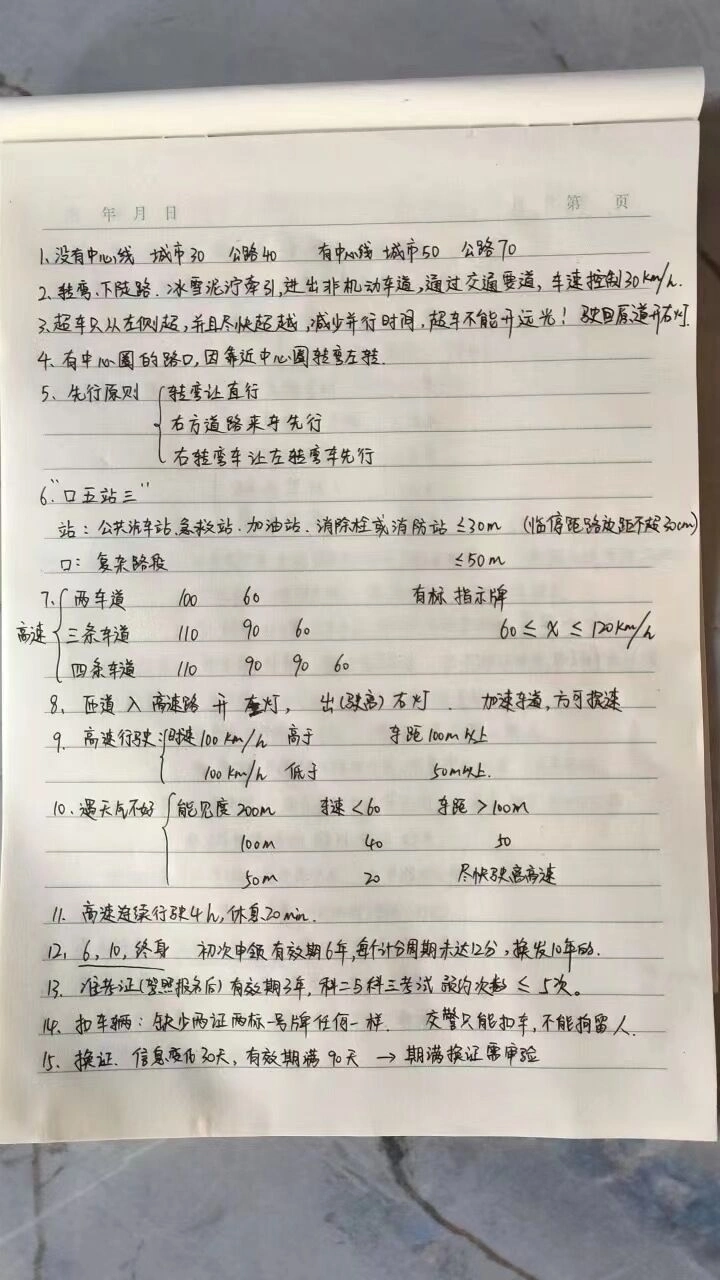 年 月 日 第 页
1、没有中心线 城市30 公路40 有中心线 城市50 公路70
2、转弯、下陡路、冰雪泥泞牵引,进出非机动车道,通过交通要道,车速控制30km/h.
3、超车只从左侧超,并且尽快超越,减少并行时间,超车不能开远光!驶回原道开右灯.
4、有中心圈的路口,因靠近中心圈转弯左转.
5、先行原则 转弯让直行
右方道路来车先行
右转弯车让左转弯车先行
6、"口五站三"
站:公共汽车站、急救站、加油站、消除栓或消防站 ≤30m (临停距路边距不超30cm)
口:复杂路段 ≤50m
7、两车道 100 60 有标 指示牌
高速 三条车道 110 90 60 60 ≤ x ≤ 120km/h
四条车道 110 90 90 60
8、匝道 入 高速路 开 左灯, 出(驶离)右灯. 加速车道,方可提速
9、高速行驶:时速100km/h 高于 车距100m以上
100km/h 低于 50m以上.
10、遇天气不好 能见度200m 车速<60 车距>100m
100m 40 50
50m 20 尽快驶离高速
11、高速连续行驶4h,休息20min.
12、6,10,终身 初次申领有效期6年,每个计分周期未达12分,换发10年的.
13、准考证(驾照报名后)有效期3年,科二与科三考试 预约次数 ≤ 5次。
14、扣车辆:缺少两证两标一号牌任何一样. 交警只能扣车,不能拘留人.
15、换证、信息变化30天,有效期满90天 → 期满换证需审验